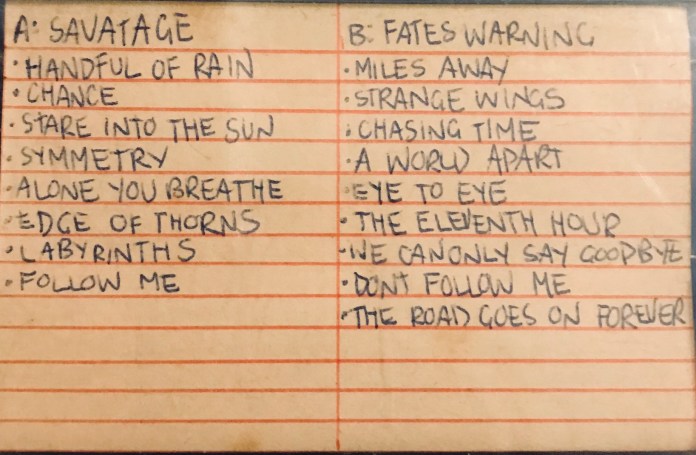 A: SAVATAGE
• HANDFUL OF RAIN
• CHANCE
• STARE INTO THE SUN
• SYMMETRY
• ALONE YOU BREATHE
• EDGE OF THORNS
• LABYRINTHS
• FOLLOW ME
B: FATES WARNING
• MILES AWAY
• STRANGE WINGS
• CHASING TIME
• A WORLD APART
• EYE TO EYE
• THE ELEVENTH HOUR
• WE CAN ONLY SAY GOODBYE
• DON'T FOLLOW ME
• THE ROAD GOES ON FOREVER